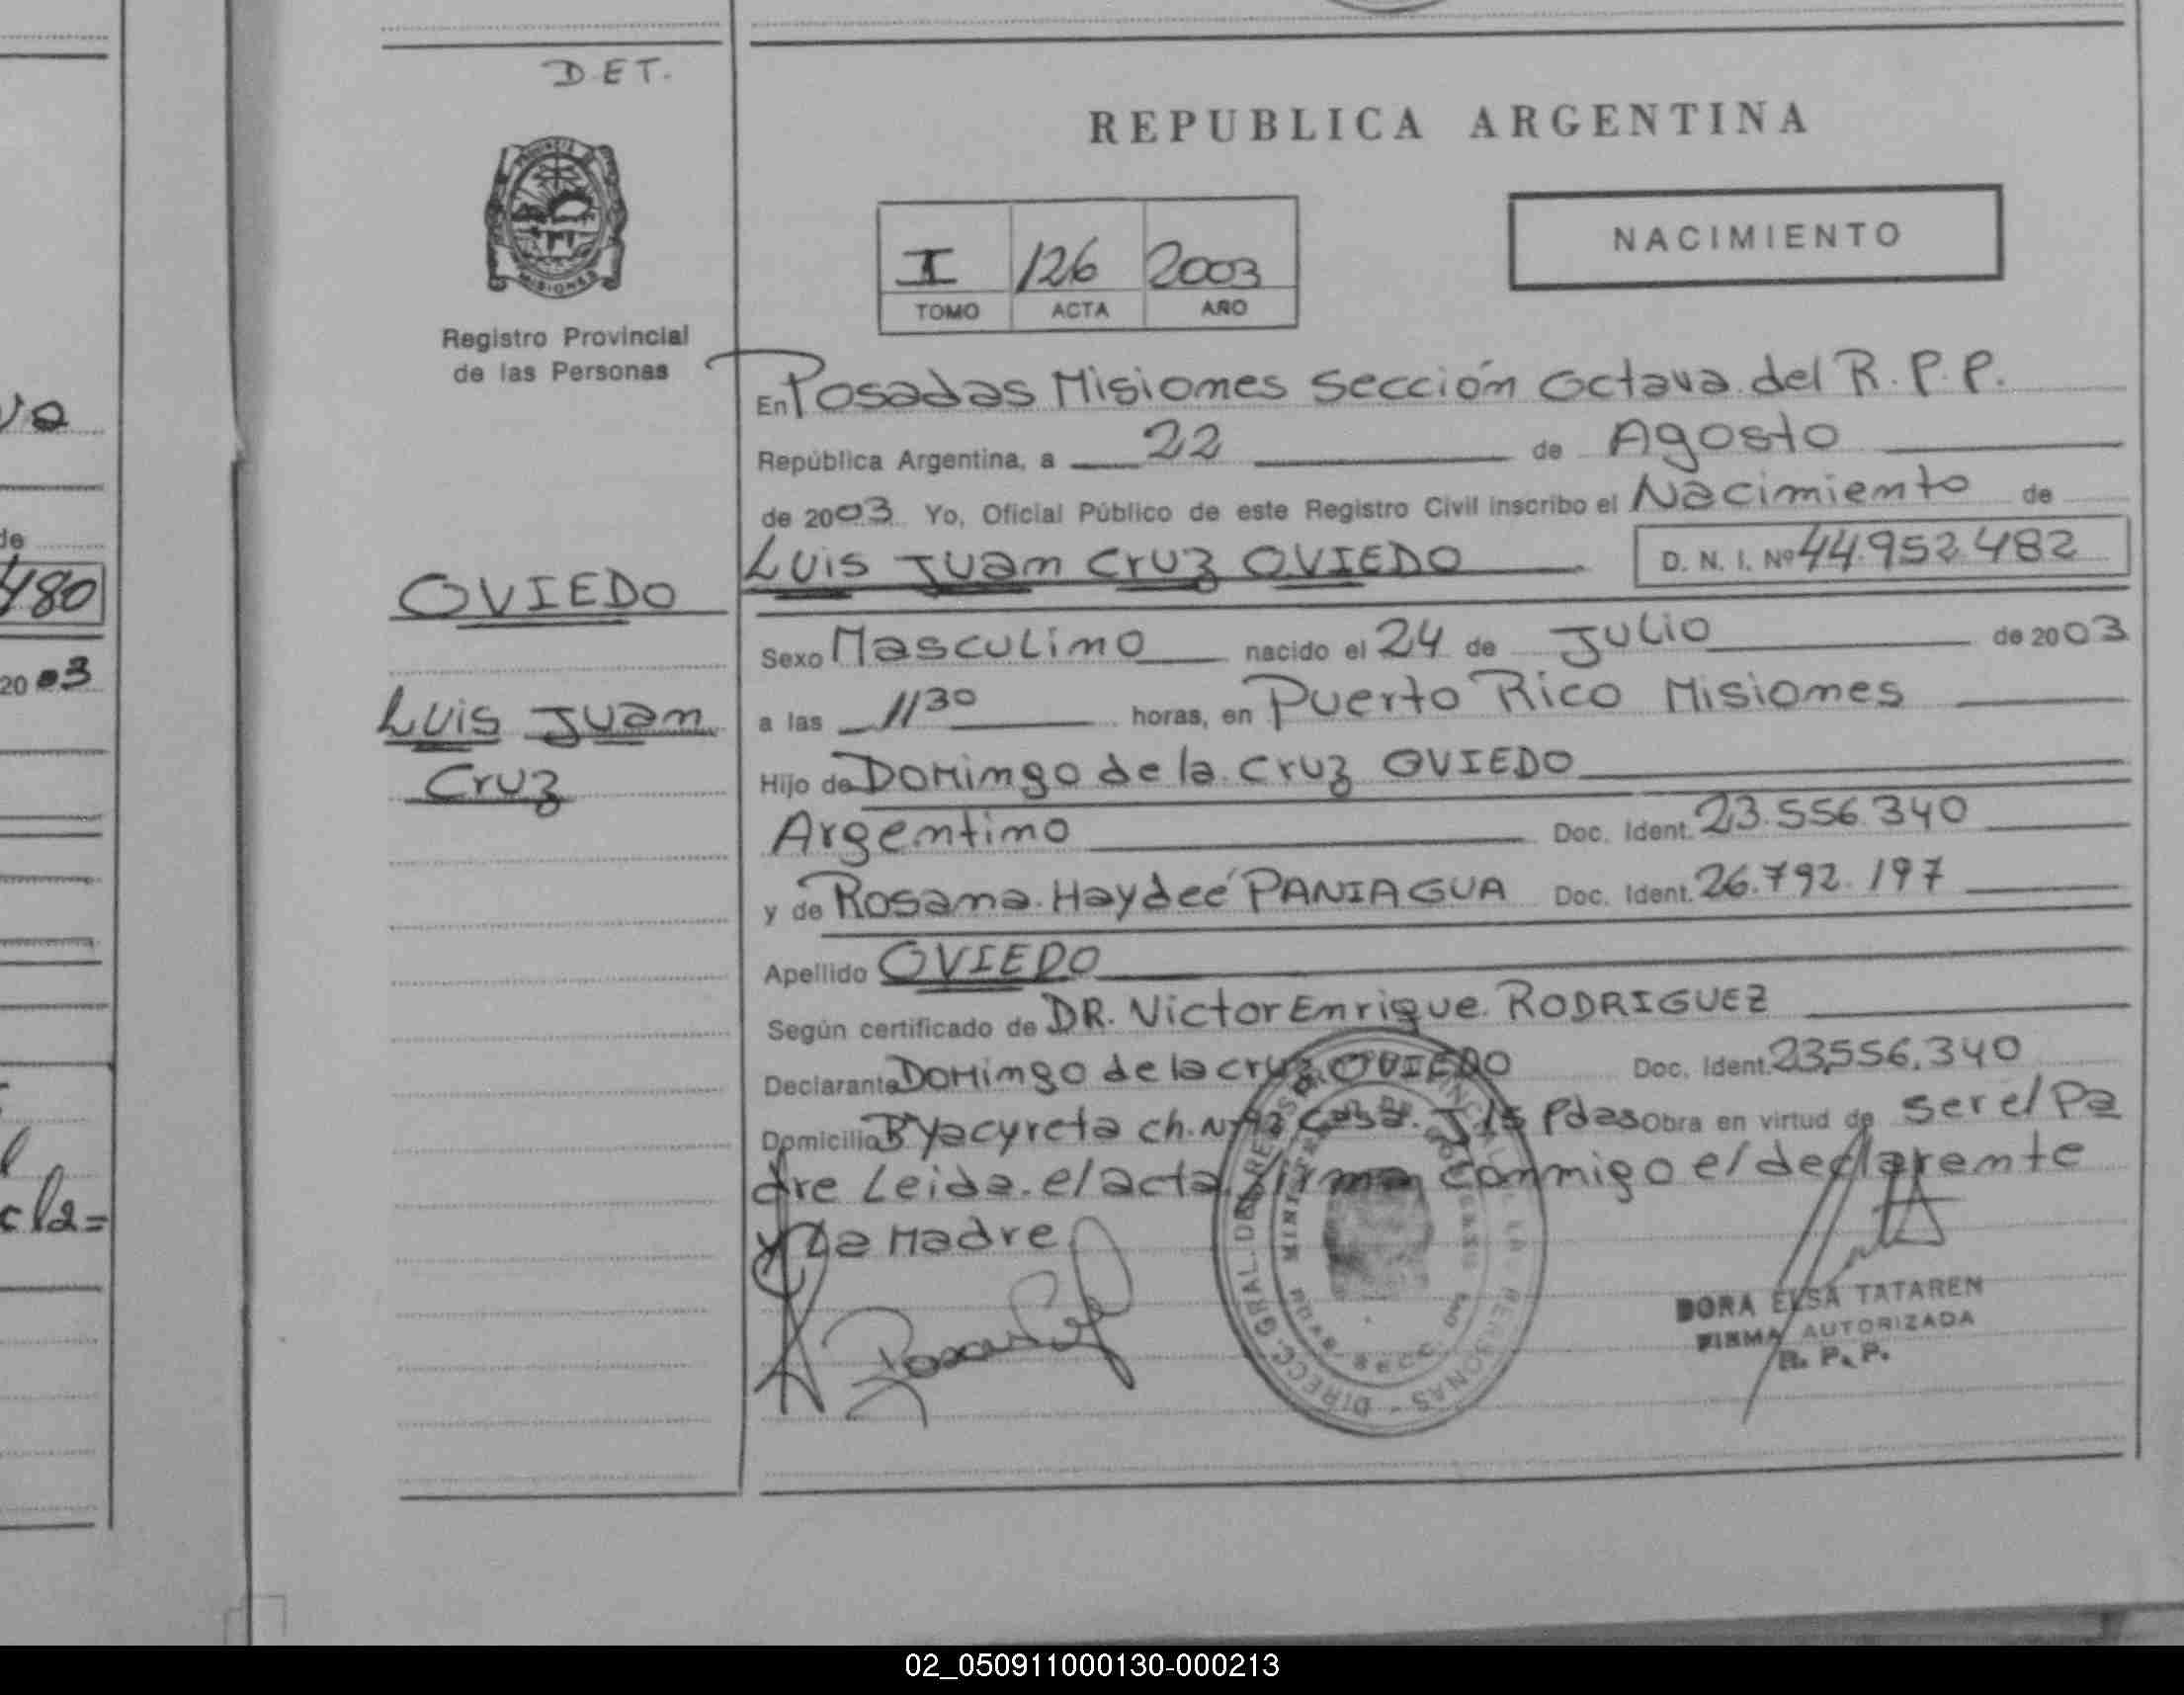 DET.
PROVINCIA DE
MISIONES
Registro Provincial
de las Personas
OVIEDO
Luis Juan
Cruz
REPUBLICA ARGENTINA
I 126 2003
TOMO ACTA AÑO
NACIMIENTO
En Posadas Misiones Sección Octava del R.P.P.
República Argentina, a 22 de Agosto
de 2003 Yo, Oficial Público de este Registro Civil inscribo el Nacimiento de
Luis Juan Cruz OVIEDO D. N. I. Nº 44.952.482
Sexo Masculino nacido el 24 de Julio de 2003
a las 11 30 horas, en Puerto Rico Misiones
Hijo de Domingo de la Cruz OVIEDO
Argentino Doc. Ident. 23.556.340
y de Rosana Haydeé PANIAGUA Doc. Ident. 26.792.197
Apellido OVIEDO
Según certificado de DR. Victor Enrique RODRIGUEZ
Declarante Domingo de la cruz OVIEDO Doc. Ident. 23,556,340
Domicilio Bº Yacyreta ch. Casa Pdas Obra en virtud de ser el Pa
dre Leida el acta firma conmigo el declarente
y La Madre
DORA ELSA TATAREN
FIRMA AUTORIZADA
R. P. P.
va
de
480
2003
cla=
02_050911000130-000213